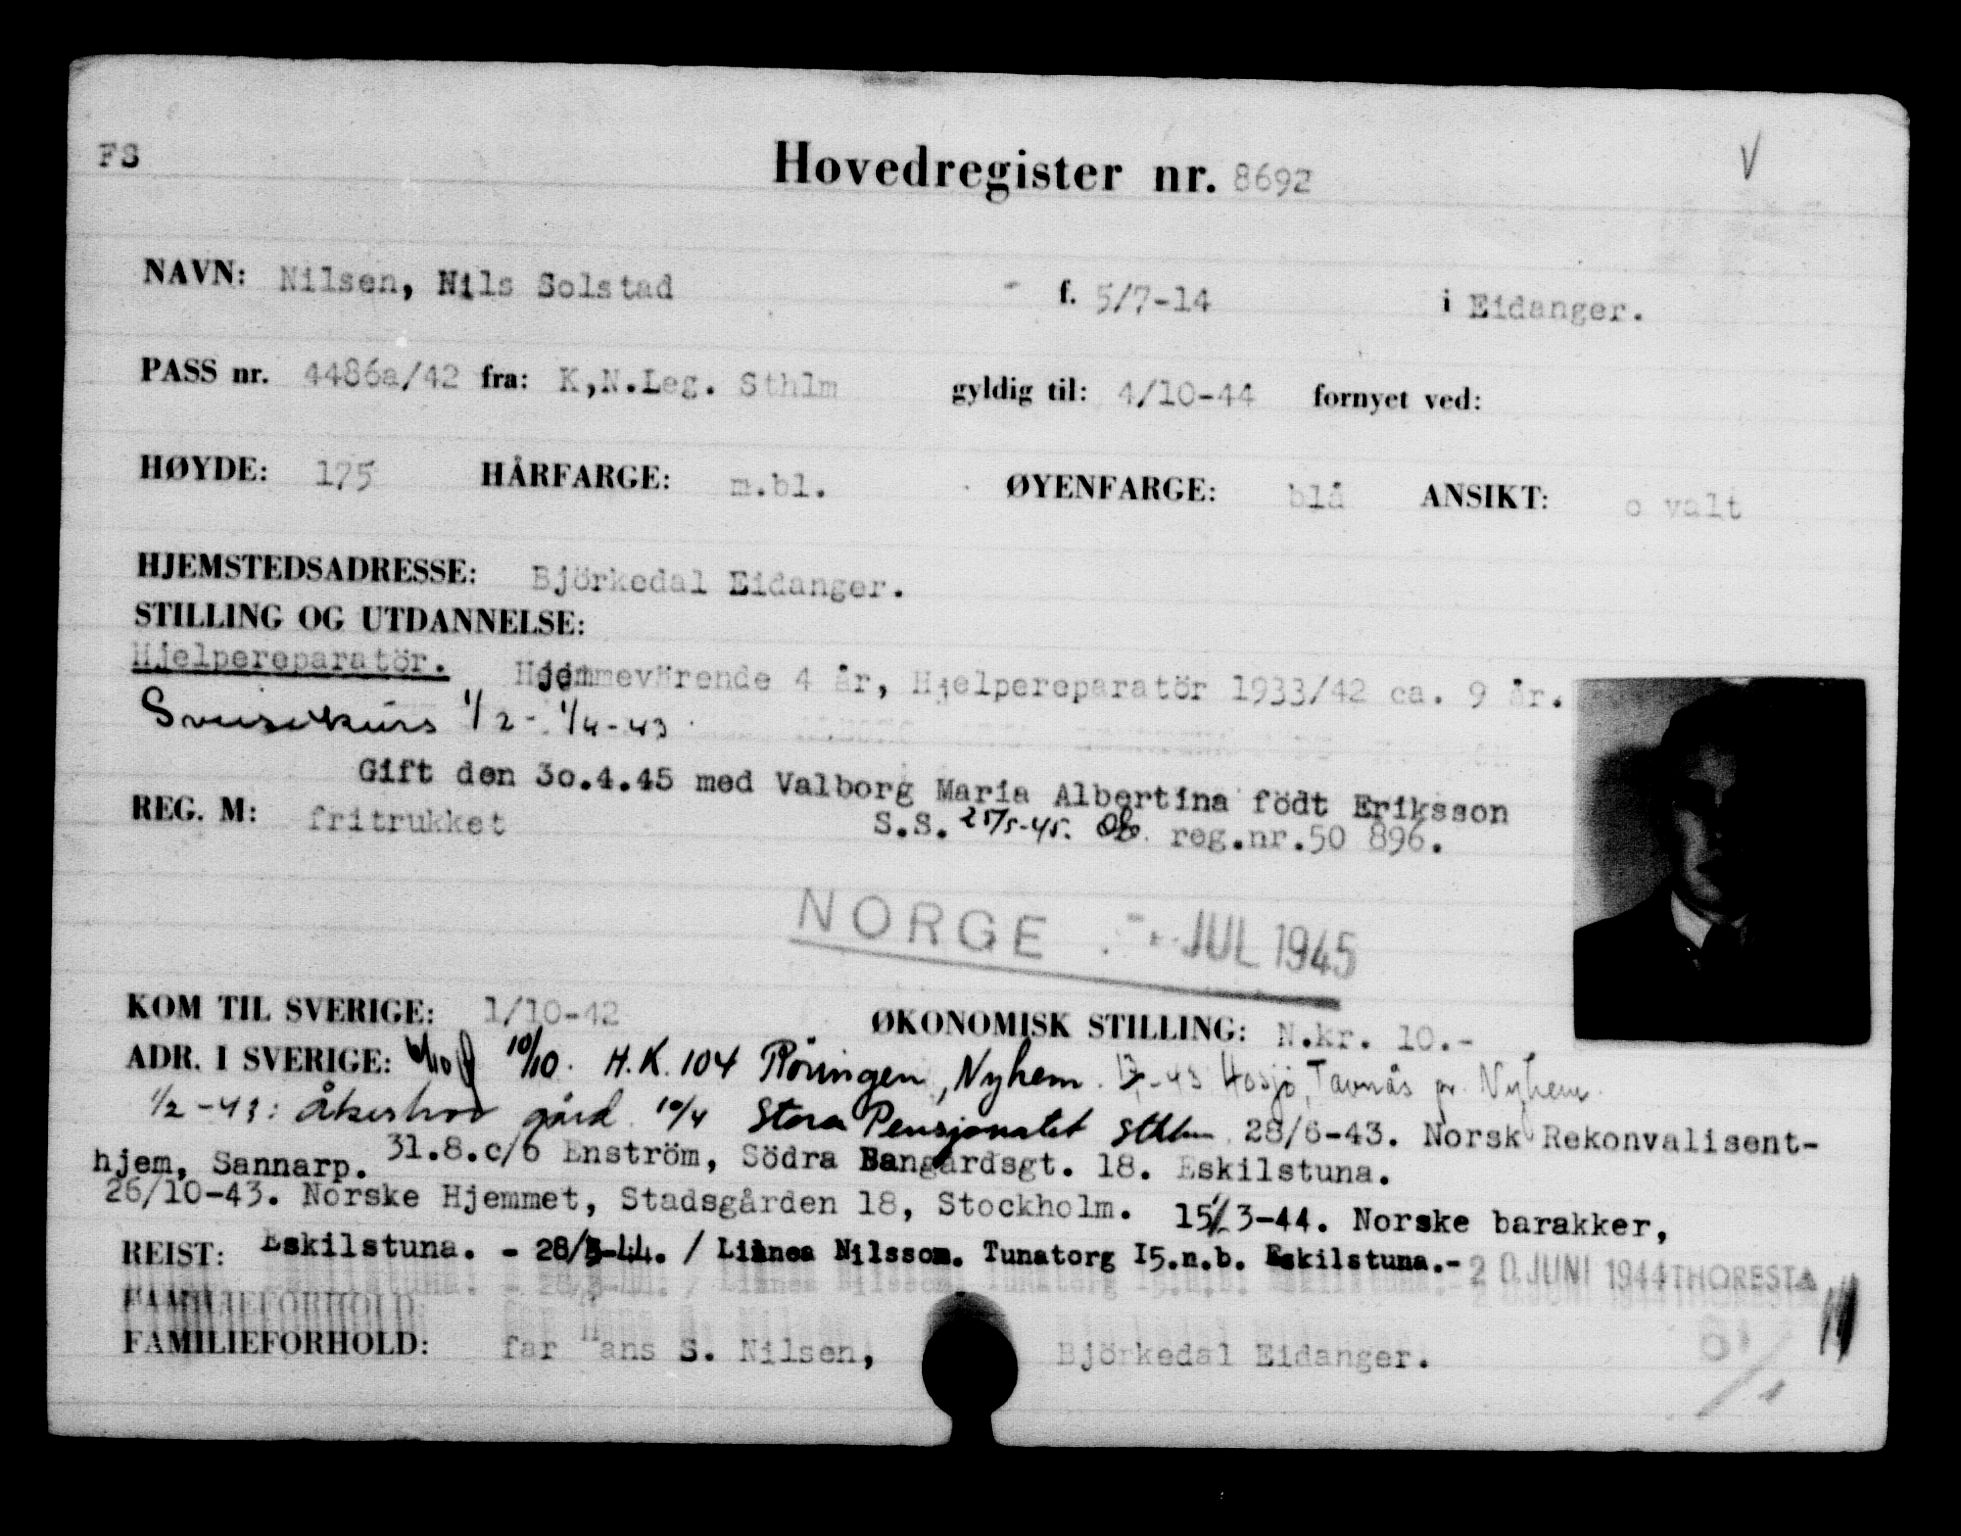 FS
Hovedregister nr. 8692
V
NAVN: Nilsen, Nils Solstad - f. 5/7-14 i Eidanger.
PASS nr. 4486a/42 fra: K,N.Leg. Sthlm gyldig til: 4/10-44 fornyet ved:
HØYDE: 175 HÅRFARGE: m.bl. ØYENFARGE: blå ANSIKT: o valt
HJEMSTEDSADRESSE: Björkedal Eidanger.
STILLING OG UTDANNELSE:
Hjelpereparatör. Hjemmevärende 4 år, Hjelpereparatör 1933/42 ca. 9 år.
Sveisekurs 1/2 - 1/4-43
Gift den 30.4.45 med Valborg Maria Albertina födt Eriksson
REG. M: fritrukket S.S. 25/5-45. reg.nr.50 896.
NORGE JUL 1945
KOM TIL SVERIGE: 1/10-42 ØKONOMISK STILLING: N.kr. 10.-
ADR. I SVERIGE: 10/10. H.K. 104 Röningen, Nyhem. -43 Hosjö, Tavnäs pr. Nyhem.
1/2-43: Åkeshov gård. 10/4 Stora Pensjonatet Sthlm 28/6-43. Norsk Rekonvalisent-
hjem, Sannarp. 31.8.c/o Enström, Södra Bangårdsgt. 18. Eskilstuna.
26/10-43. Norske Hjemmet, Stadsgården 18, Stockholm. 15/3-44. Norske barakker,
REIST: Eskilstuna. - 28/3-44. / Linnea Nilsson. Tunatorg 15.n.b. Eskilstuna.- 20.JUNI 1944 THORESTA
FAMILIEFORHOLD: far Hans S. Nilsen, Björkedal Eidanger.